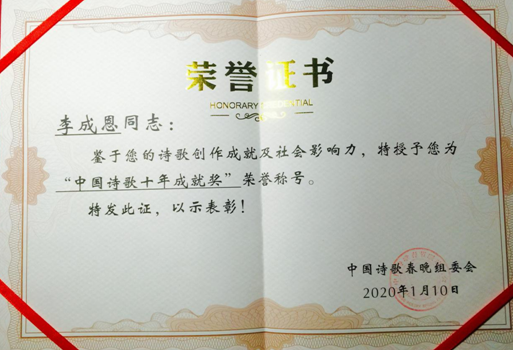 荣誉证书
HONORARY CREDENTIAL
李成恩同志：
鉴于您的诗歌创作成就及社会影响力，特授予您为
“中国诗歌十年成就奖”荣誉称号。
特发此证，以示表彰！
中国诗歌春晚组委会
2020年1月10日